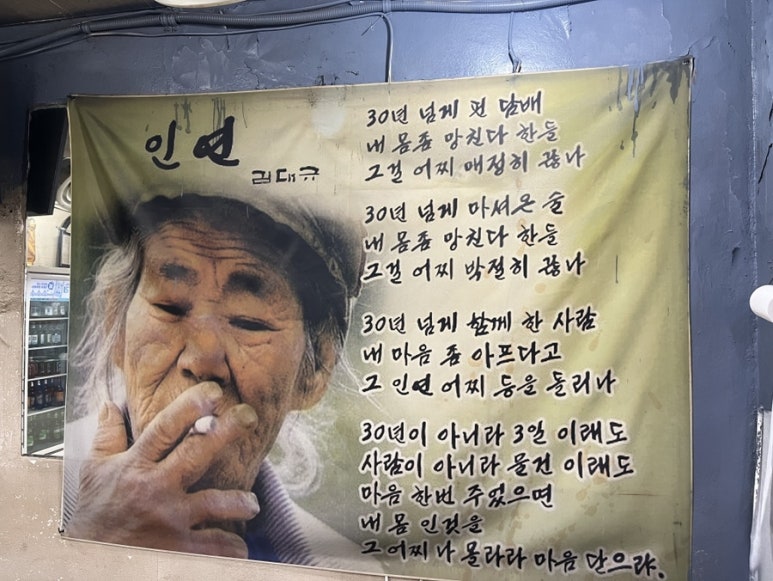 인연
김대규
30년 넘게 핀 담배
내 몸좀 망친다 한들
그걸 어찌 매정히 끊나
30년 넘게 마셔온 술
내 몸좀 망친다 한들
그걸 어찌 박절히 끊나
30년 넘게 함께 한 사람
내 마음 좀 아프다고
그 인연 어찌 등을 돌리나
30년이 아니라 3일 이래도
사람이 아니라 물건 이래도
마음 한번 주었으면
내 몸 인것을
그 어찌 나 몰라라 마음 닫으랴.